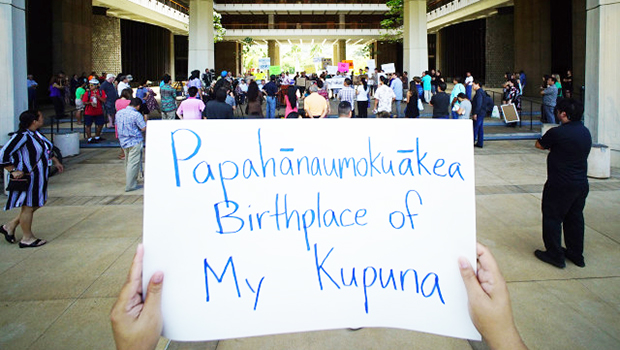 Papahānaumokuākea
Birthplace of
My Kupuna